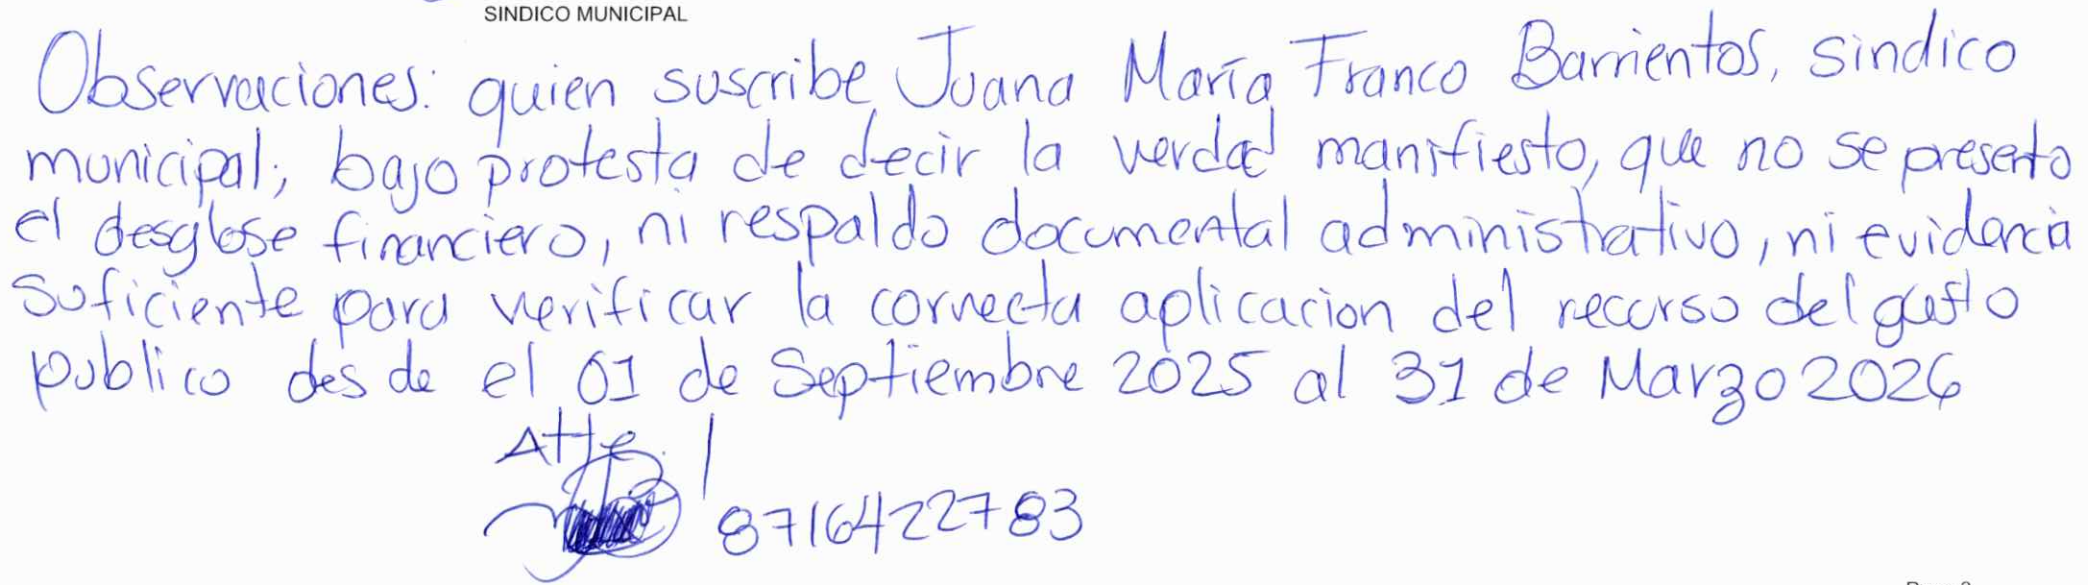 SINDICO MUNICIPAL
Observaciones: quien suscribe Juana María Franco Barrientos, sindico
municipal, bajo protesta de decir la verdad manifiesto, que no se presento
el desglose financiero, ni respaldo documental administrativo, ni evidencia
suficiente para verificar la correcta aplicacion del recurso del gasto
publico desde el 01 de Septiembre 2025 al 31 de Marzo 2026
Atte.
8716422783